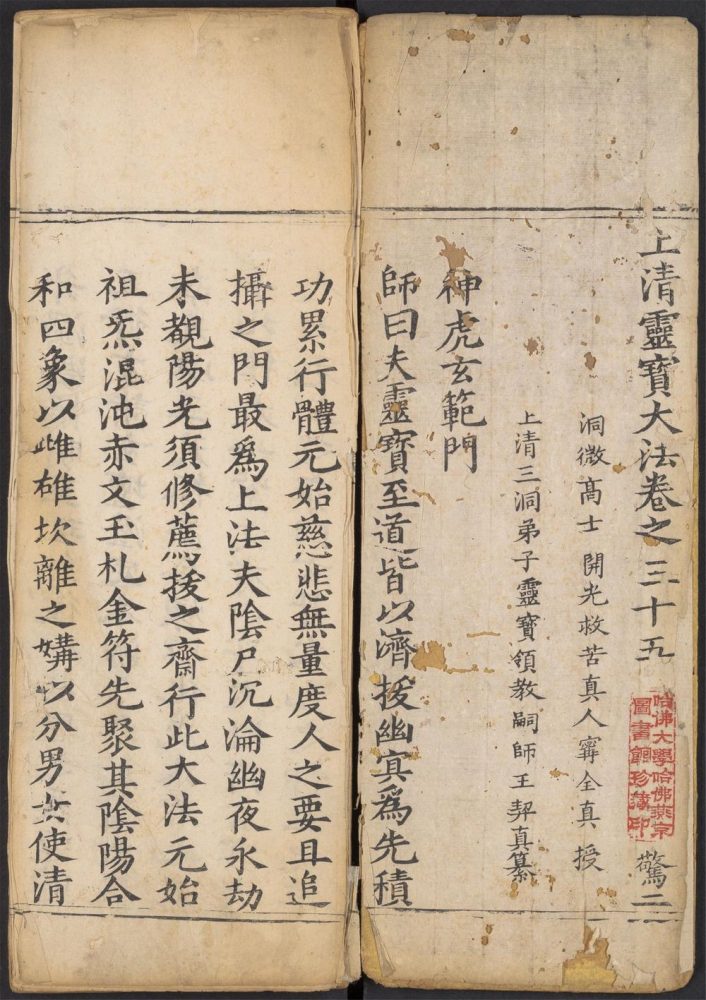 上清靈寶大法卷之三十五
驚二
哈佛大學哈佛燕京
圖書館珍藏印
洞微高士開光救苦真人甯全真授
上清三洞弟子靈寶領教嗣師王契真纂
神虎玄範門
師曰夫靈寶至道皆以濟拔幽冥為先積
功累行體元始慈悲無量度人之要且追
攝之門最為上法夫陰尸沉淪幽夜永劫
未覩陽光須修薦拔之齋行此大法元始
祖炁混沌赤文玉札金符先聚其陰陽合
和四象以雌雄坎離之媾以分男女使清